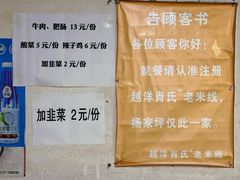 牛肉、肥肠 13元/份
酸菜5元/份 辣子鸡6元/份
加韭菜2元/份
加韭菜 2元/份
告顾客书
各位顾客你好：
就餐请认准注册
越洋肖氏 老米线，
杨家坪仅此一家。
越洋肖氏 老米线